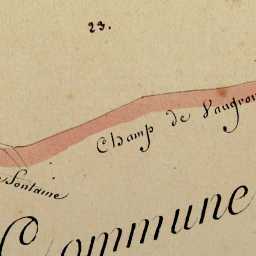 23.
Champ de Vaugron
Fontaine
Commune